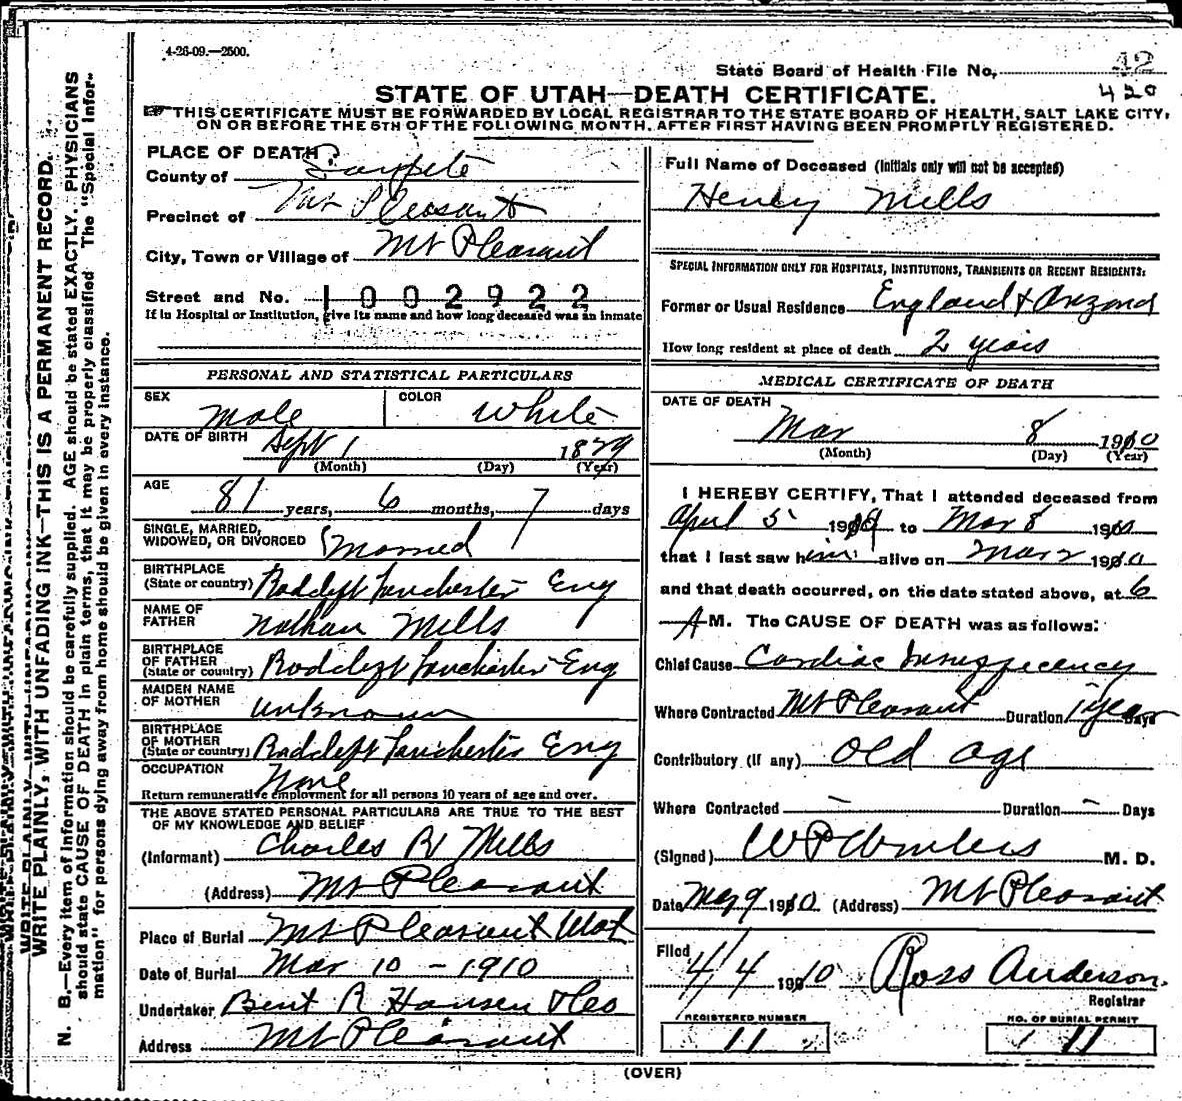 4-26-09.—2500.
State Board of Health File No. 42
420
STATE OF UTAH—DEATH CERTIFICATE.
THIS CERTIFICATE MUST BE FORWARDED BY LOCAL REGISTRAR TO THE STATE BOARD OF HEALTH, SALT LAKE CITY,
ON OR BEFORE THE 5TH OF THE FOLLOWING MONTH, AFTER FIRST HAVING BEEN PROMPTLY REGISTERED.
WRITE PLAINLY, WITH UNFADING INK—THIS IS A PERMANENT RECORD.
N. B.—Every item of information should be carefully supplied. AGE should be stated EXACTLY. PHYSICIANS
should state CAUSE OF DEATH in plain terms, that it may be properly classified. The "Special Infor-
mation" for persons dying away from home should be given in every instance.
PLACE OF DEATH:
County of Sanpete
Precinct of Mt Pleasant
City, Town or Village of Mt Pleasant
Street and No. 1002922
If in Hospital or Institution, give its name and how long deceased was an inmate
PERSONAL AND STATISTICAL PARTICULARS
SEX Male COLOR White
DATE OF BIRTH Sept 1 1829
(Month) (Day) (Year)
AGE 81 years, 6 months, 7 days
SINGLE, MARRIED,
WIDOWED, OR DIVORCED Married
BIRTHPLACE
(State or country) Radclyft Lanchester Eng
NAME OF
FATHER Nathan Mills
BIRTHPLACE
OF FATHER
(State or country) Radclyft Lanchester Eng
MAIDEN NAME
OF MOTHER unknown
BIRTHPLACE
OF MOTHER
(State or country) Radclyft Lanchester Eng
OCCUPATION None
Return remunerative employment for all persons 10 years of age and over.
THE ABOVE STATED PERSONAL PARTICULARS ARE TRUE TO THE BEST
OF MY KNOWLEDGE AND BELIEF
(Informant) Charles H Mills
(Address) Mt Pleasant
Place of Burial Mt Pleasant Utah
Date of Burial Mar 10 - 1910
Undertaker Bent R Hansen & Co
Address Mt Pleasant
Full Name of Deceased (Initials only will not be accepted)
Henry Mills
SPECIAL INFORMATION ONLY FOR HOSPITALS, INSTITUTIONS, TRANSIENTS OR RECENT RESIDENTS:
Former or Usual Residence England & Arizona
How long resident at place of death 2 years
MEDICAL CERTIFICATE OF DEATH
DATE OF DEATH
Mar 8 1910
(Month) (Day) (Year)
I HEREBY CERTIFY, That I attended deceased from
April 5 1909 to Mar 8 1910
that I last saw him alive on Mar 2 1910
and that death occurred, on the date stated above, at 6
A M. The CAUSE OF DEATH was as follows:
Chief Cause Cardiac Insufficiency
Where Contracted Mt Pleasant Duration 1 year Days
Contributory (if any) Old age
Where Contracted — Duration — Days
(Signed) M. D.
Date Mar 9 1910 (Address) Mt Pleasant
Filed 4/4 1910 Ross Anderson
Registrar
REGISTERED NUMBER
11
NO. OF BURIAL PERMIT
11
(OVER)